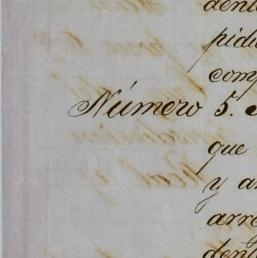 pida
com
Número 5.
que
y a
arre
den